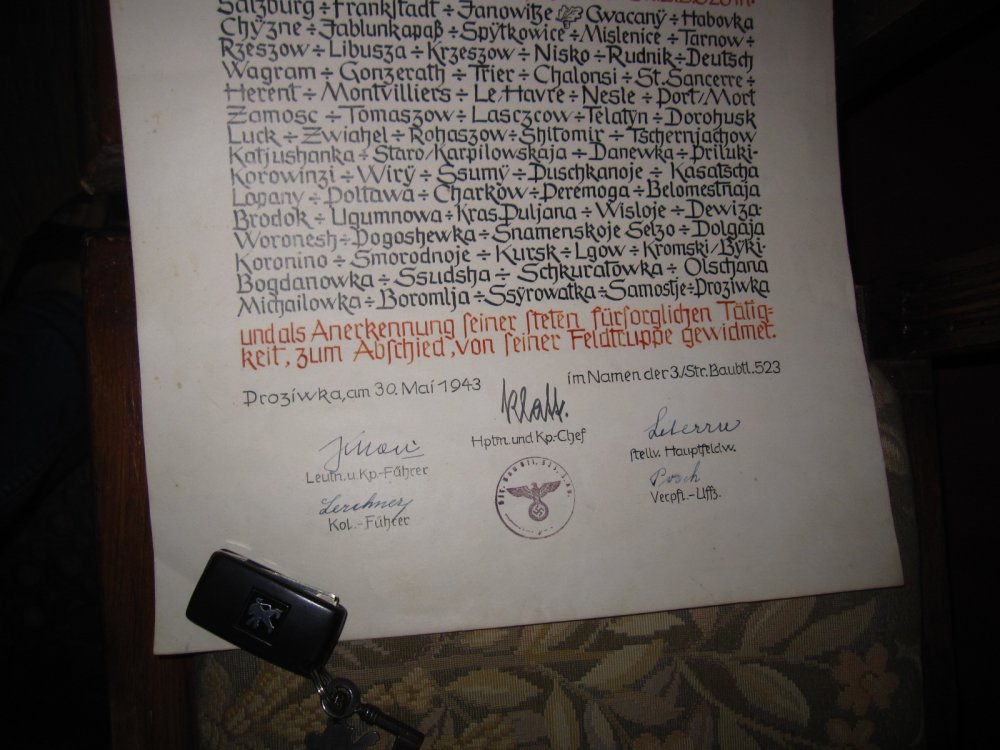 Salzburg ÷ Frankstadt ÷ Janowitze Gwacaný ÷ Habovka
Chýzne ÷ Jablunkapaß ÷ Spýtkowice ÷ Mislenice ÷ Tarnow ÷
Rzeszow ÷ Libusza ÷ Krzeszow ÷ Nisko ÷ Rudnik ÷ Deutsch
Wagram ÷ Gonzerath ÷ Trier ÷ Chalonsi ÷ St. Sancerre ÷
Herent ÷ Montvilliers ÷ Le/Havre ÷ Nesle ÷ Port/Mort
Zamosc ÷ Tomaszow ÷ Lasczcow ÷ Telatýn ÷ Dorohusk
Luck ÷ Zwiahel ÷ Rohaszow ÷ Shitomir ÷ Tschernjachow
Katjushanka ÷ Staro/Karpilowskaja ÷ Danewka ÷ Priluki-
Korowinzi ÷ Wirý ÷ Ssumý ÷ Duschkanoje ÷ Kasatscha
Lopany ÷ Poltawa ÷ Charkow ÷ Peremoga ÷ Belomestnaja
Brodok ÷ Ugumnowa ÷ Kras.Puljana ÷ Wisloje ÷ Dewiza-
Woronesh ÷ Pogoshewka ÷ Snamenskoje Selzo ÷ Dolgaja
Koronino ÷ Smorodnoje ÷ Kursk ÷ Lgow ÷ Kromski/Býki-
Bogdanowka ÷ Ssudsha ÷ Schkuratowka ÷ Olschana
Michailowka ÷ Boromlja ÷ Ssýrowatka ÷ Samostje ÷ Droziwka
und als Anerkennung seiner steten fürsorglichen Tätig=
keit, zum Abschied, von seiner Feldtruppe gewidmet.
Droziwka, am 30. Mai 1943 im Namen der 3./Str. Baubtl. 523
Klatt.
Hptm. und Kp.-Chef
Leutn. u. Kp.-Führer
stellv. Hauptfeldw.
Lerchner
Kol.-Führer
Posch
Verpfl.-Uffz.